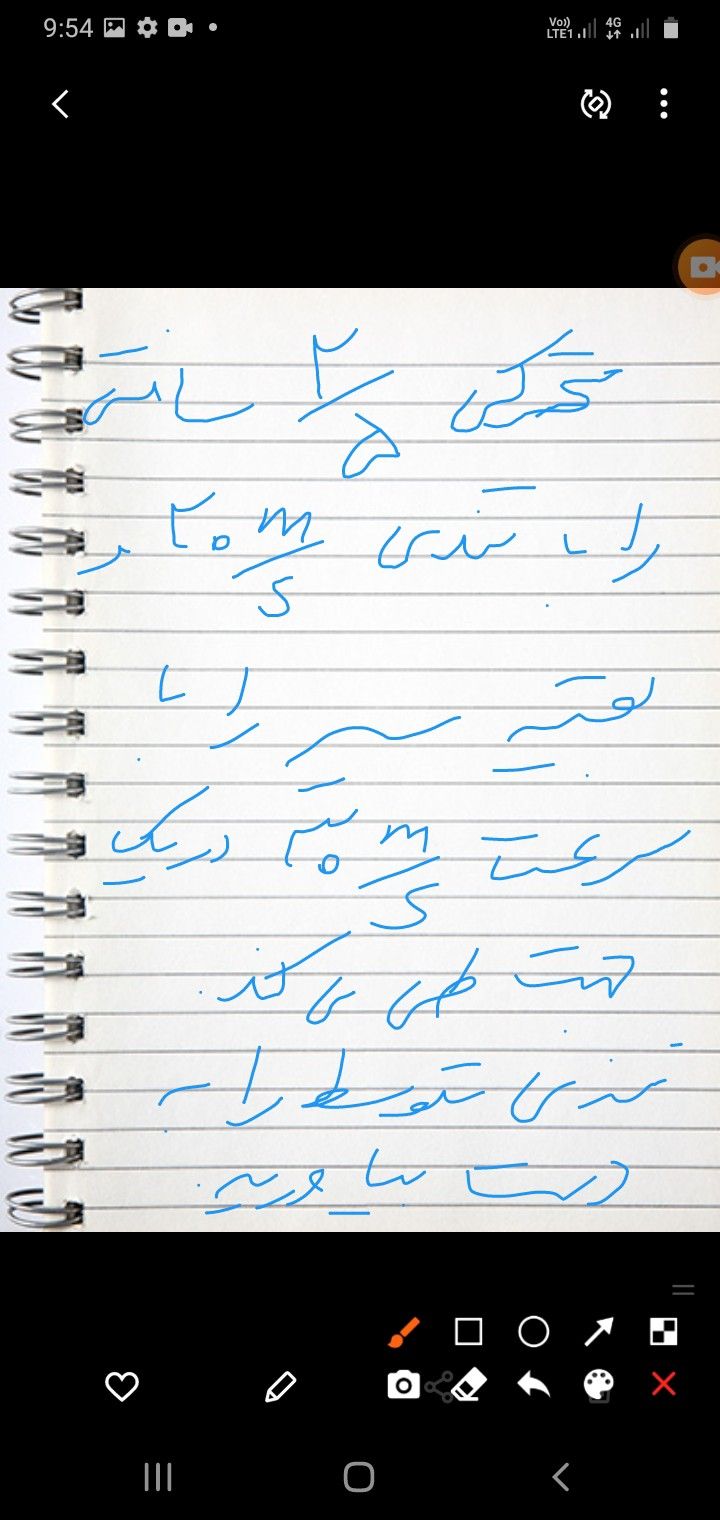 9:54
Vo)) LTE1 4G
متحرکی ۲/۵ مسافتی
را با تندی ۲۰ m/s و
بقیه مسیر را با
سرعت ۳۰ m/s در یک
جهت طی می کند.
تندی متوسط را به
دست بیاورید.